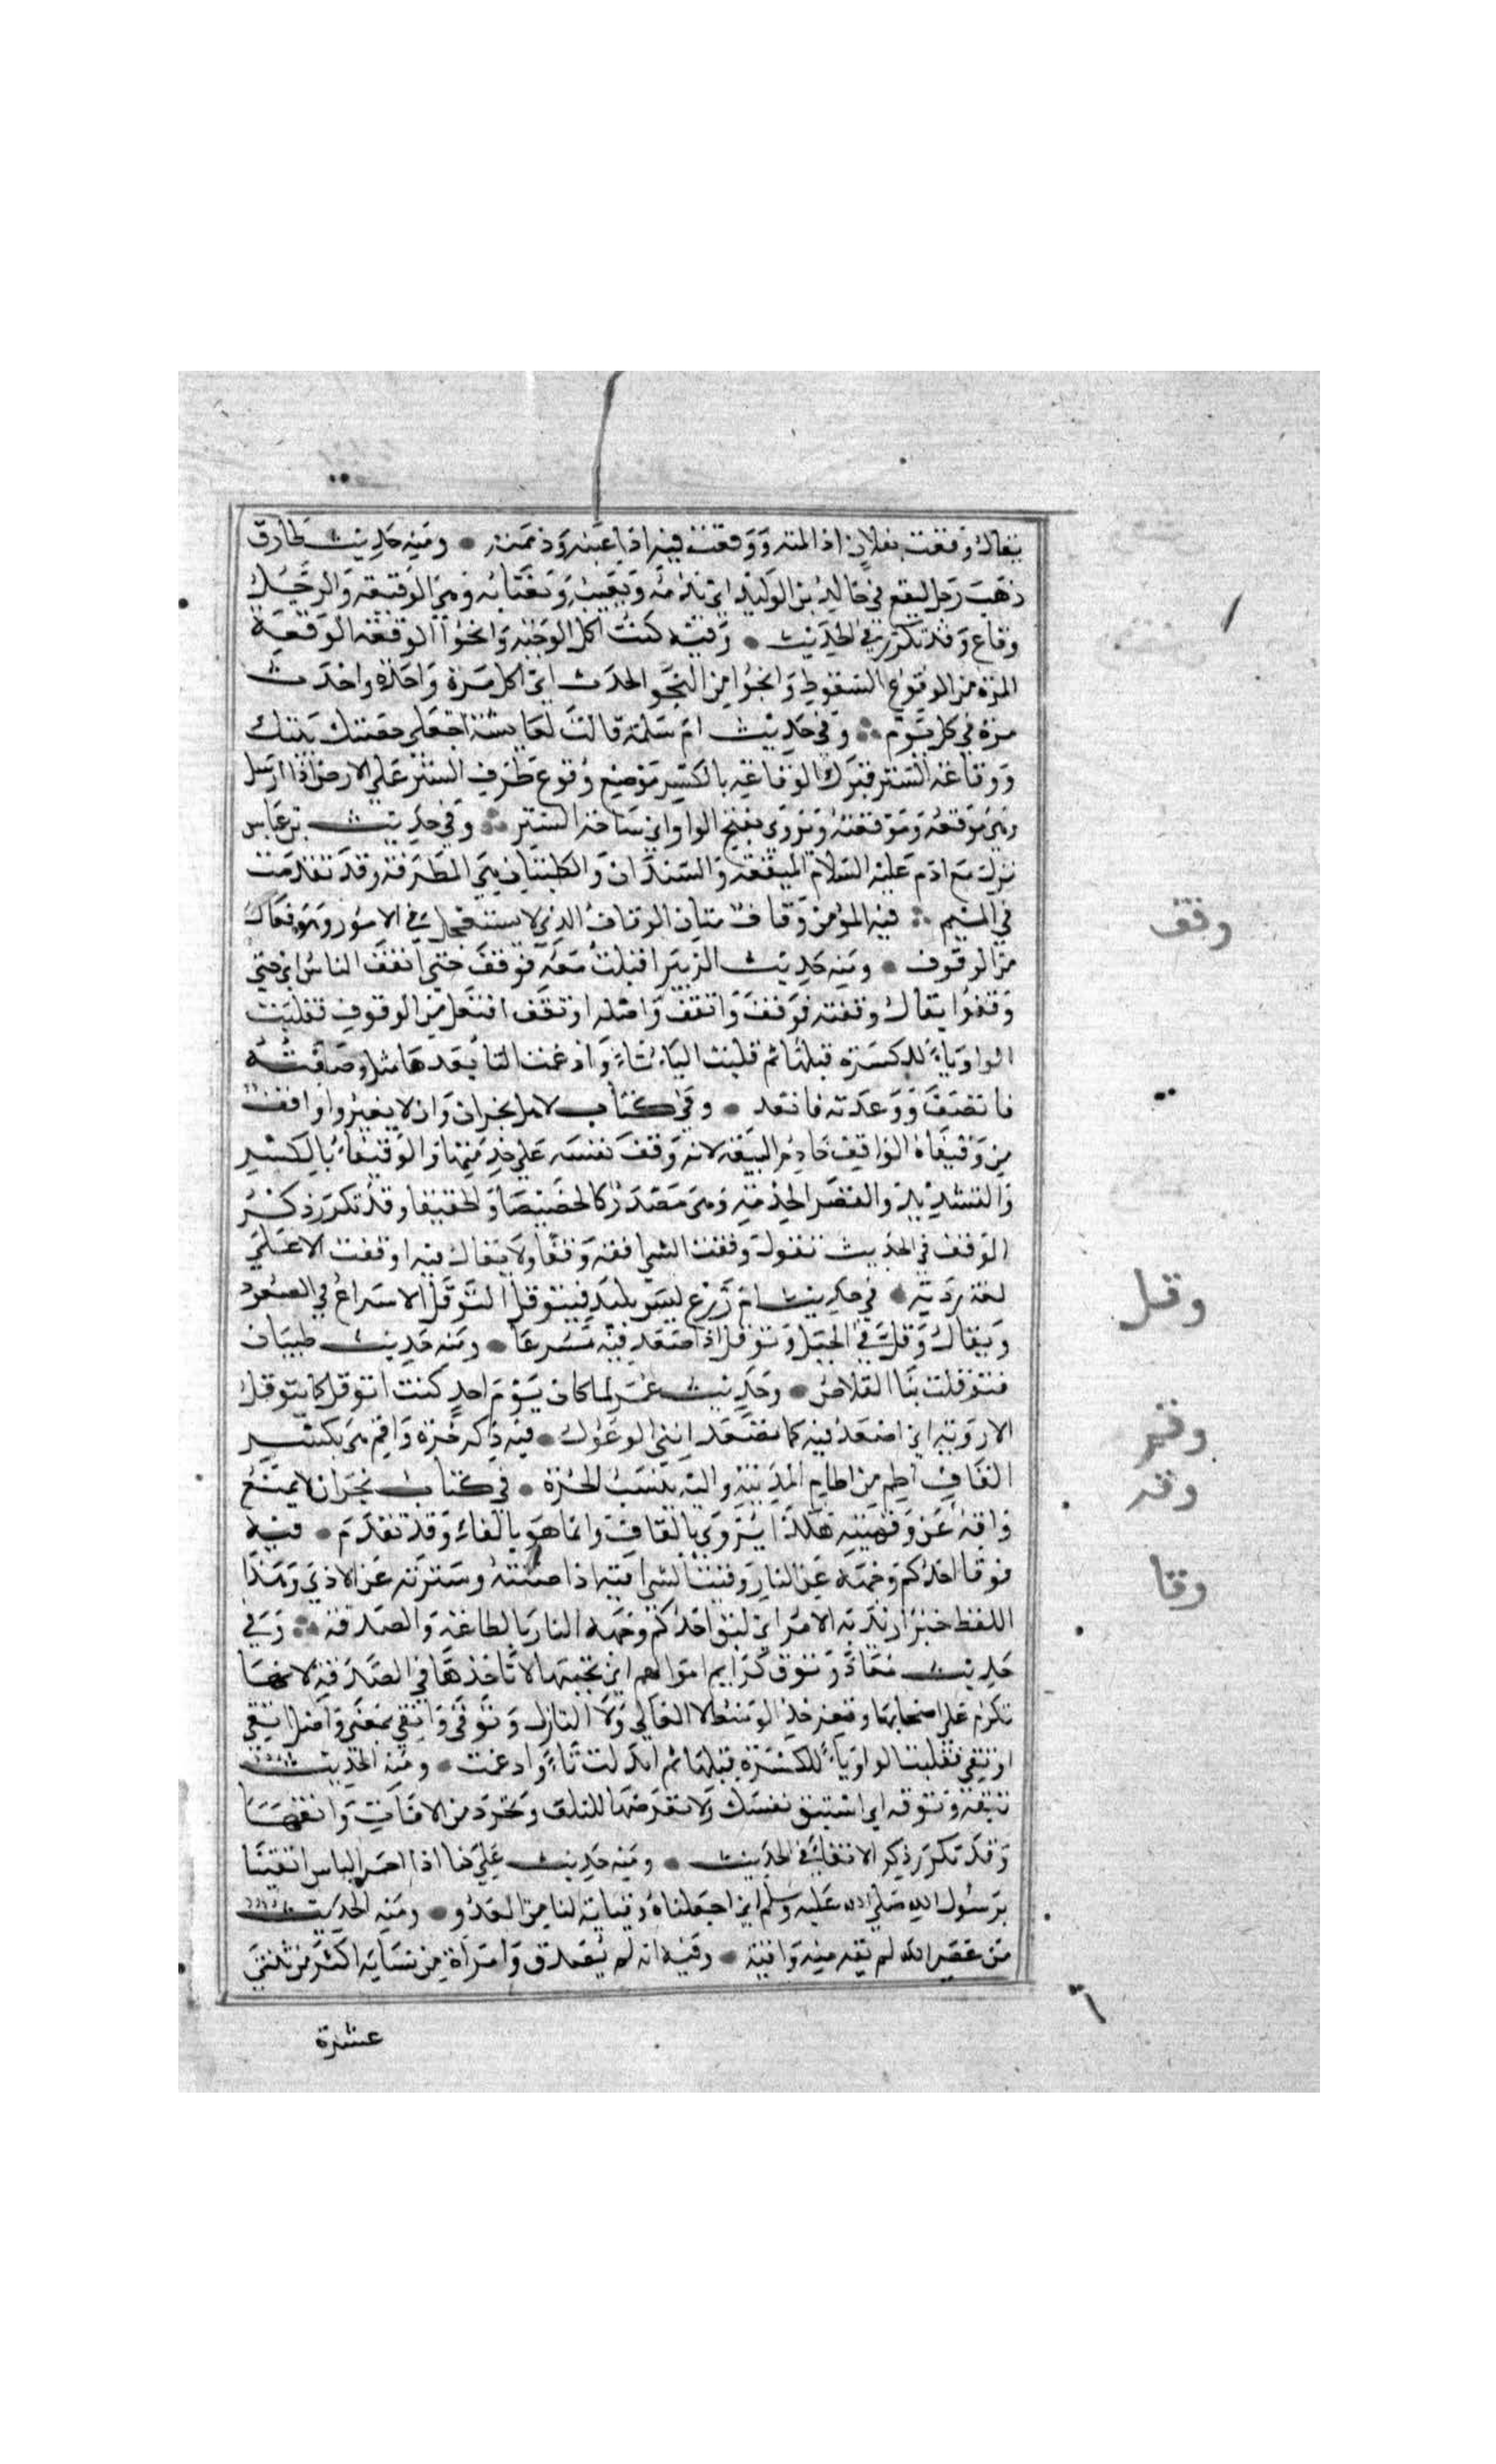 يقال وقعت بفلان اذا لمته ووقعت فيه اذا عبته وذممته • ومنه حديث طارق
ذهب رجل ليقع في خالد بن الوليد اي يذمه ويعيبه ويغتابه وهي الوقيعة والرجل
وقاع وقد تكرر في الحديث • وفيه كنت اكل الوجبة وانجوا الوقعة الوقعة
المرة من الوقوع السقوط وانجوا من النجو الحدث اي اكل مرة واحدة واحدث
مرة في كل يوم ؞ وفي حديث ام سلمة قالت لعايشة اجعلي حصنك بيتك
ووقاعة الستر قبرك الوقاعة بالكسر موضع وقوع طرف الستر على الارض اذا ارسل
وهي موقعه وموقعته وتروى بفتح الواو اي ساحة الستر ؞ وفي حديث بن عباس
نزل مع ادم عليه السلام الميقعة والسندان والكلبتان هي المطرقة وقد تقدمت
في الميم ؞ فيه المؤمن وقاف متان الوقاف الذي لا يستعجل في الامور وهو فعال
من الوقوف • ومنه حديث الزبير اقبلت معه فوقف حتى اتقف الناس اي حتى
وقفوا يقال وقفته فوقف واتقف واصله اوتقف افتعل من الوقوف فقلبت
الواو ياء للكسرة قبلها ثم قلبت الياء تاء وادغمت التا بعدها مثل وصفته
فاتصف ووعدته فاتعد • وفي كتاب لاهل نجران وان لا يغيروا واقفا
من وقيفاه الواقف خادم البيعة لانه وقف نفسه على خدمتها والوقيفاء بالكسر
والتشديد والقصر الخدمة وهي مصدر كالخصيصا والخليفا وقد تكرر ذكر
الوقف في الحديث تقول وقفت الشي اقفه وقفا ولا يقال فيه اوقفت الا على
لغة ردية • في حديث ام زرع ليس بلبد فيتوقل التوقل الاسراع في الصعود
ويقال وقل في الجبل وتوقل اذا صعد فيه مسرعا • ومنه حديث ظبيان
فتوقلت بنا القلاص • وحديث عمر لما كان يوم احد كنت اتوقل كما يتوقل
الاروية اي اصعد فيه كما تصعد انثى الوعول • فيه ذكر حرة واقم هي بكسر
القاف اطم من اطام المدينة واليه ينسب الحرة • في كتاب نجران لا يمنع
واقه عن وقهيته هكذا يروى بالقاف وانما هو بالفاء وقد تقدم • فيه
فوقا احدكم وجهه عن النار وقيت الشي اقيه اذا صنته وسترته عن الاذى وهذا
اللفظ خبر اريد به الامر اي ليق احدكم وجهه النار بالطاعة والصدقة ؞ وفي
حديث معاذ وتوق كرايم اموالهم اي تجنبها لا تاخذها في الصدقة لانها
تكرم على اصحابها وتعز فخذ الوسط لا العالي ولا النازل وتوقى واتقى بمعنى واصل اتقى
اوتقى فقلبت الواو ياء للكسرة قبلها ثم ابدلت تاء وادغمت • ومنه الحديث
تبقه وتوقه اي استبق نفسك ولا تعرضها للتلف وتحرز من الافات واتقها
وقد تكرر ذكر الاتقاء في الحديث • ومنه حديث علي كنا اذا احمر الباس اتقينا
برسول الله صلى الله عليه وسلم اي اجعلناه وقاية لنا من العدو • ومنه الحديث
من عصى الله لم يقه منه واقية • وفيه انه لم يصدق وامراة من نسايه اكثر من ثنتي
عشرة
وقف
وقل
وقم
وقه
وقا